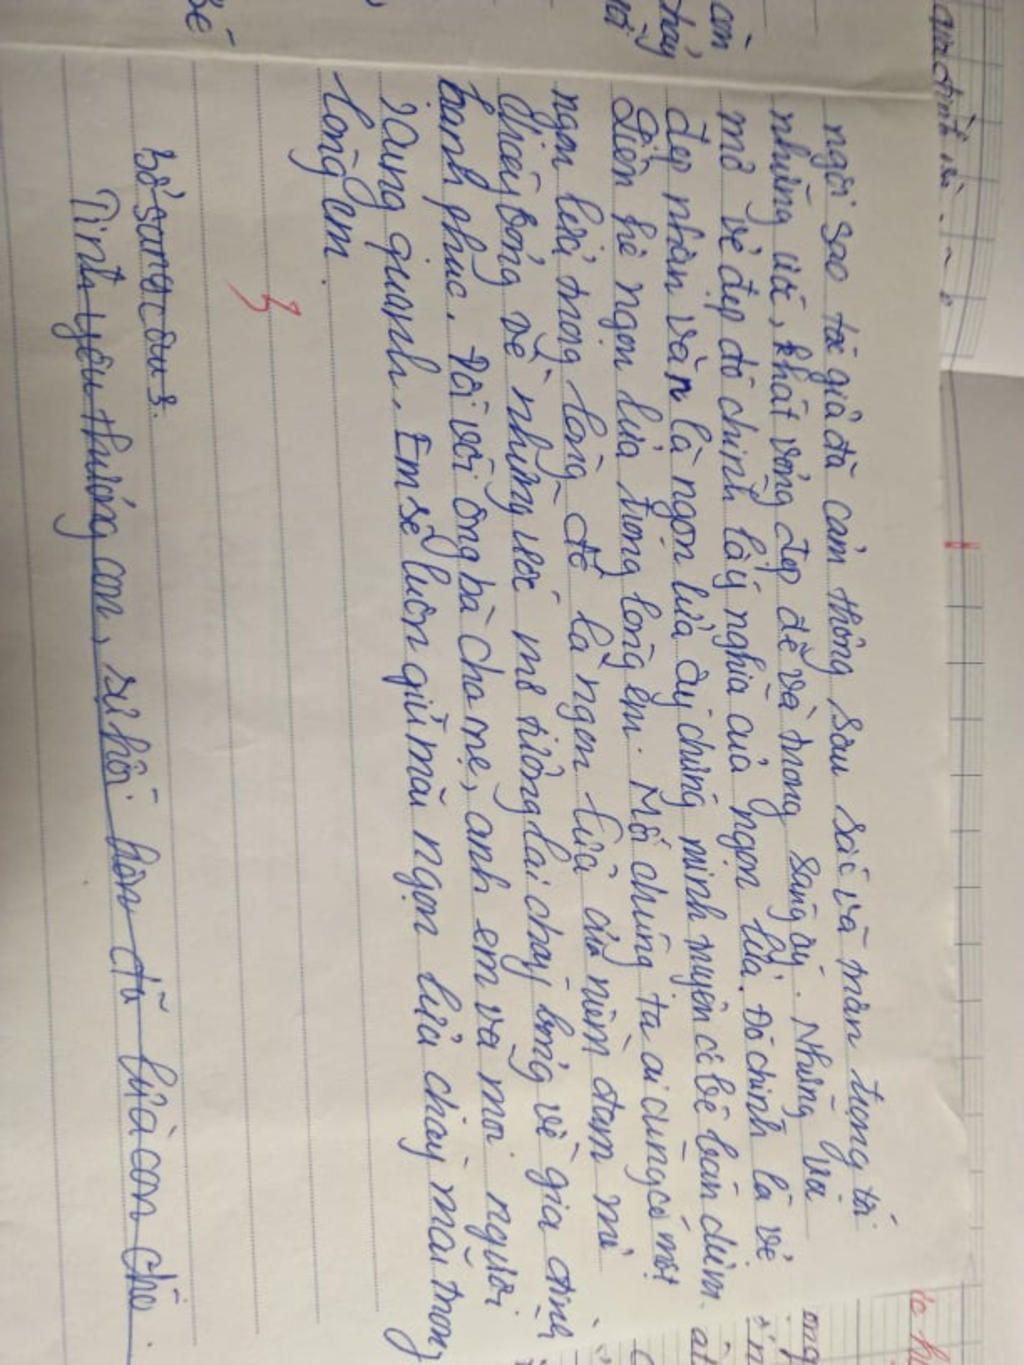 ngôi sao tác giả đã cảm thông sâu sắc và trân trọng tới
những ước, khát vọng đẹp đẽ và trong sáng ấy. Những ước
mở vẻ đẹp đó chính là ý nghĩa của ngọn lửa. Đó chính là vẻ
đẹp nhân văn là ngọn lửa ấy chứng minh truyện cô bé bán diêm.
Liên hệ ngọn lửa trong lòng em. Mỗi chúng ta ai cũng có một
ngọn lửa trong lòng, đó là ngọn lửa của niềm đam mê
cháy bỏng về những ước mơ tương lai cháy bỏng về gia đình
hạnh phúc. Đối với ông bà cha mẹ, anh em và mọi người
xung quanh. Em sẽ luôn giữ mãi ngọn lửa cháy mãi trong
lòng em.
Bổ sung câu 3.
Tình yêu thương con, sự hối hận đã lừa con chó.